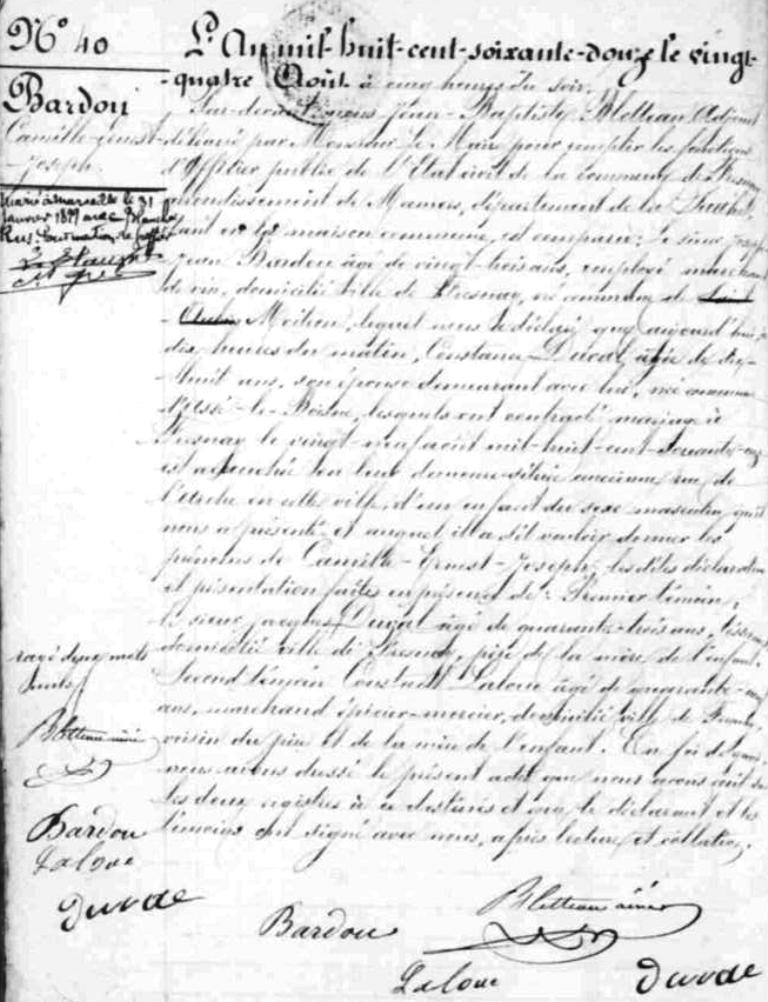 N° 40
Bardou
Camille-Ernest-
-Joseph.
Marié à Marseille le 31
Janvier 1899 avec Blanche
L'An mil-huit-cent-soixante-douze le vingt-
-quatre Août à cinq heures du soir.
Par-devant nous Jean-Baptiste Blotteau Adjoint
délégué par Monsieur Le Maire pour remplir les fonctions
d'Officier public de l'Etat civil de la commune de Fresnay
arrondissement de Mamers, département de la Sarthe,
en la maison commune, est comparu: Le sieur Joseph
Jean Bardou âgé de vingt-trois ans, employé marchand
de vin, domicilié ville de Fresnay, né commune de Saint
-Aubin Moitron, lequel nous a déclaré que aujourd'hui, à
dix heures du matin, Constance Duval, âgée de dix-
-huit ans, son épouse demeurant avec lui, née commune
d'Assé-le-Boisne, lesquels ont contracté mariage à
Fresnay le vingt-neuf août mil-huit-cent-soixante-onze
est accouchée en leur demeure située ancienne rue de
l'Arche en cette ville, d'un enfant du sexe masculin, qu'il
nous a présenté et auquel il a dit vouloir donner les
prénoms de Camille-Ernest-Joseph; les dites déclaration
et présentation faites en présence de: Premier témoin,
le sieur Jacques Duval âgé de quarante-trois ans,
domicilié ville de Fresnay, père de la mère de l'enfant.
Second témoin Constant Laloue âgé de quarante-
ans, marchand épicier-mercier, domicilié ville de Fresnay
voisin du père et de la mère de l'enfant. En foi de quoi
nous avons dressé le présent acte que nous avons écrit sur
les deux registres à ce destinés et que le déclarant et les
témoins ont signé avec nous, après lecture et collation.
rayé deux mots
nuls
Blotteau ainé
Bardou
Laloue
Duval
Bardou
Blotteau ainé
Laloue
Duval